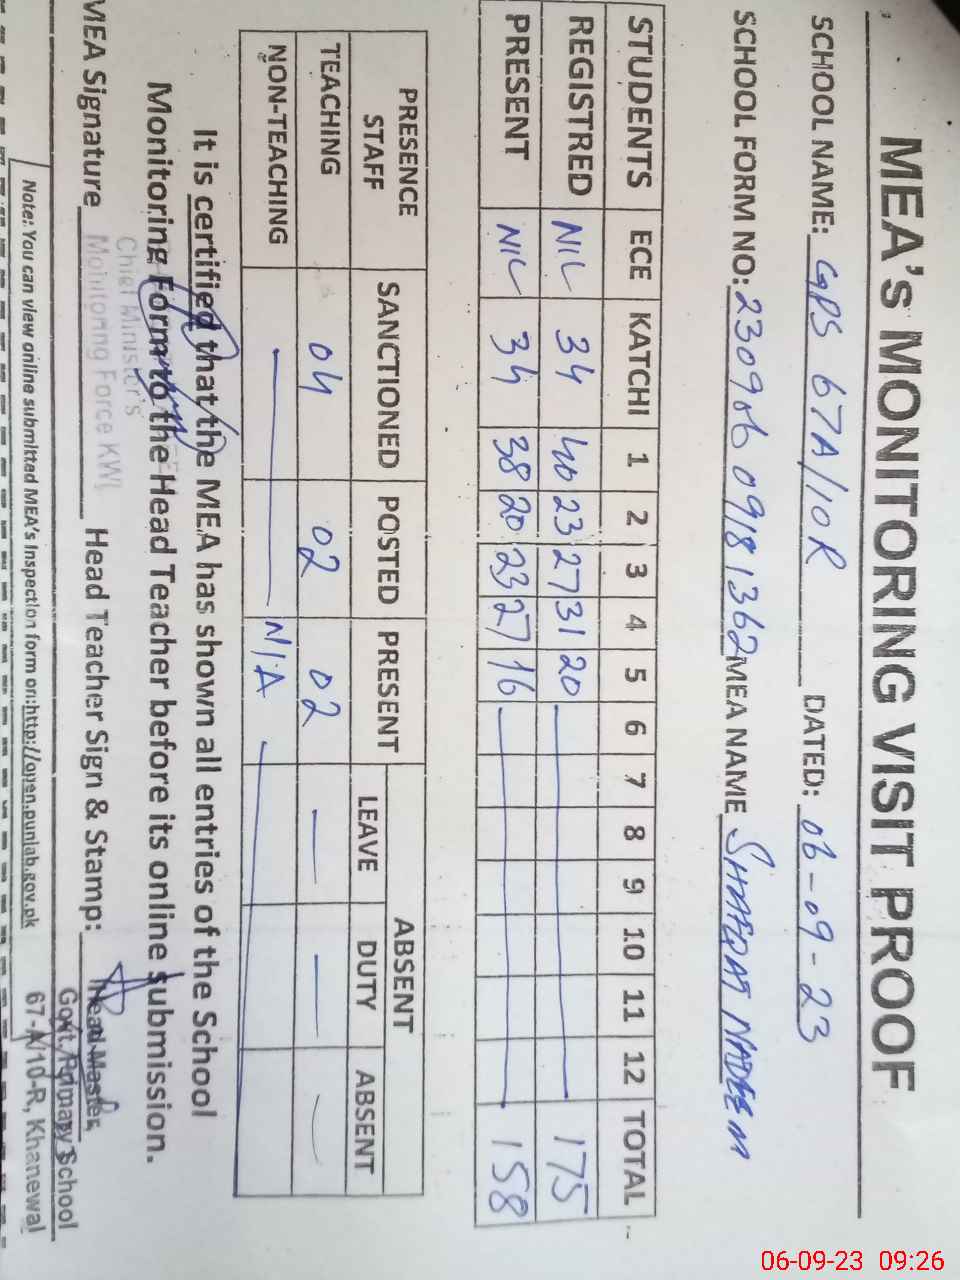 MEA's MONITORING VISIT PROOF
SCHOOL NAME: GPS 67A/10R DATED: 06-09-23
SCHOOL FORM NO: 230906 0918 1362 MEA NAME SHAFQAT NADEEM
STUDENTS ECE KATCHI 1 2 3 4 5 6 7 8 9 10 11 12 TOTAL
REGISTRED NIL 34 40 23 27 31 20 175
PRESENT NIL 34 38 20 23 27 16 158
PRESENCE STAFF SANCTIONED POSTED PRESENT ABSENT
LEAVE DUTY ABSENT
TEACHING 04 02 02 — — —
NON-TEACHING — N/A —
It is certified that the MEA has shown all entries of the School
Monitoring Form to the Head Teacher before its online submission.
MEA Signature Head Teacher Sign & Stamp:
Chief Minister's
Monitoring Force KWL
Head Master
Govt. Primary School
67-A/10-R, Khanewal
Note: You can view online submitted MEA's Inspection form on: http://open.punlab.gov.pk
06-09-23 09:26